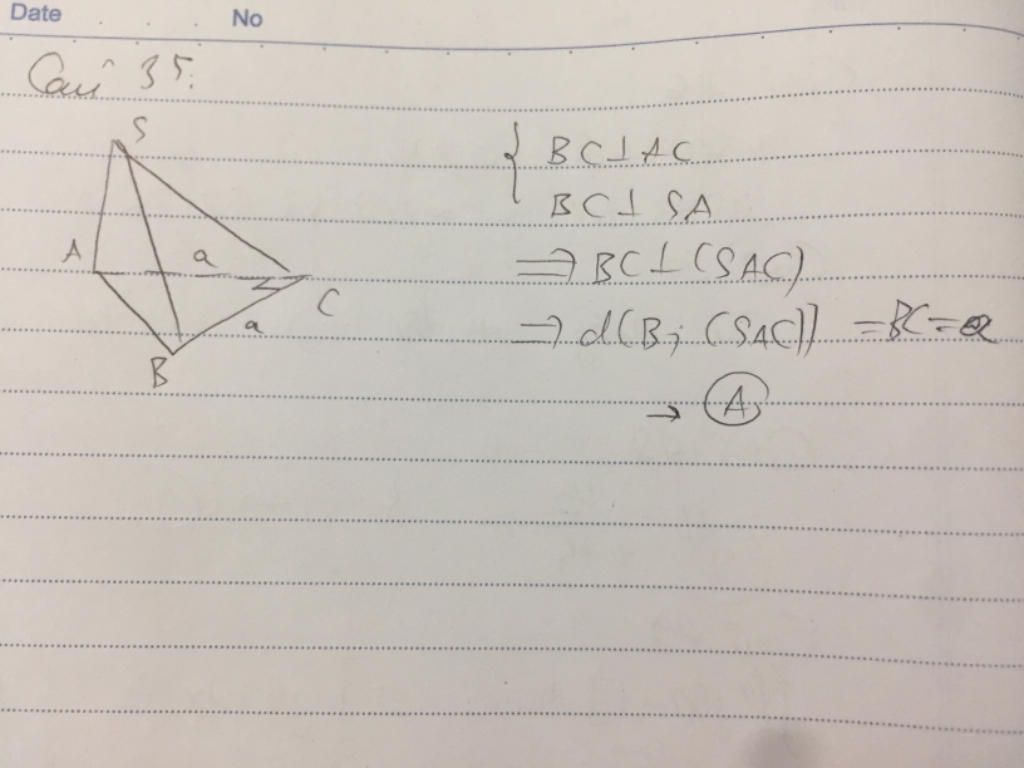 Date No
Câu 35.
S
A
a
C
a
B
{ BC⊥AC
BC⊥SA
⇒ BC⊥(SAC)
⇒ d(B; (SAC)) = BC = a
→ A